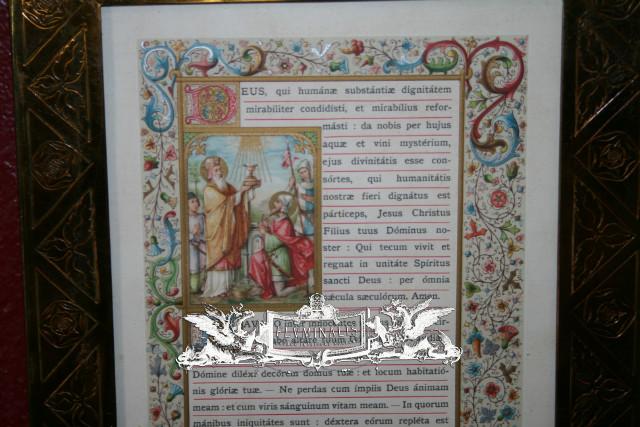 DEUS, qui humánæ substántiæ dignitátem
mirabíliter condidísti, et mirabílius refor-
másti : da nobis per hujus
aquæ et vini mystérium,
ejus divinitátis esse con-
sórtes, qui humanitátis
nostræ fíeri dignátus est
párticeps, Jesus Christus
Fílius tuus Dóminus no-
ster : Qui tecum vivit et
regnat in unitáte Spíritus
sancti Deus : per ómnia
sǽcula sæculórum. Amen.
inter innocéntes
altáre tuum
FLUMINALIS
Dómine diléxi decórem domus tuæ : et locum habitatió-
nis glóriæ tuæ. — Ne perdas cum ímpiis Deus ánimam
meam : et cum viris sánguinum vitam meam. — In quorum
mánibus iniquitátes sunt : déxtera eórum repléta est